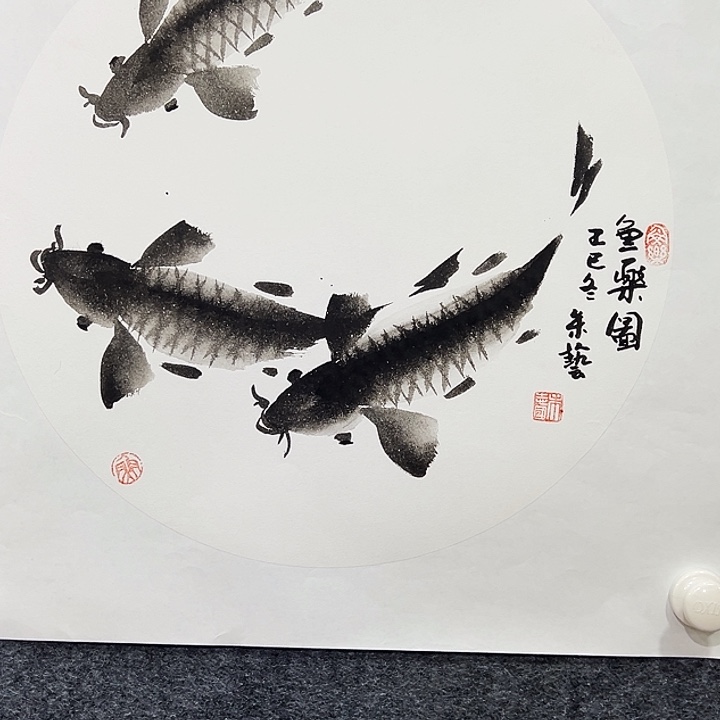 魚樂圖
乙巳冬 朱藝